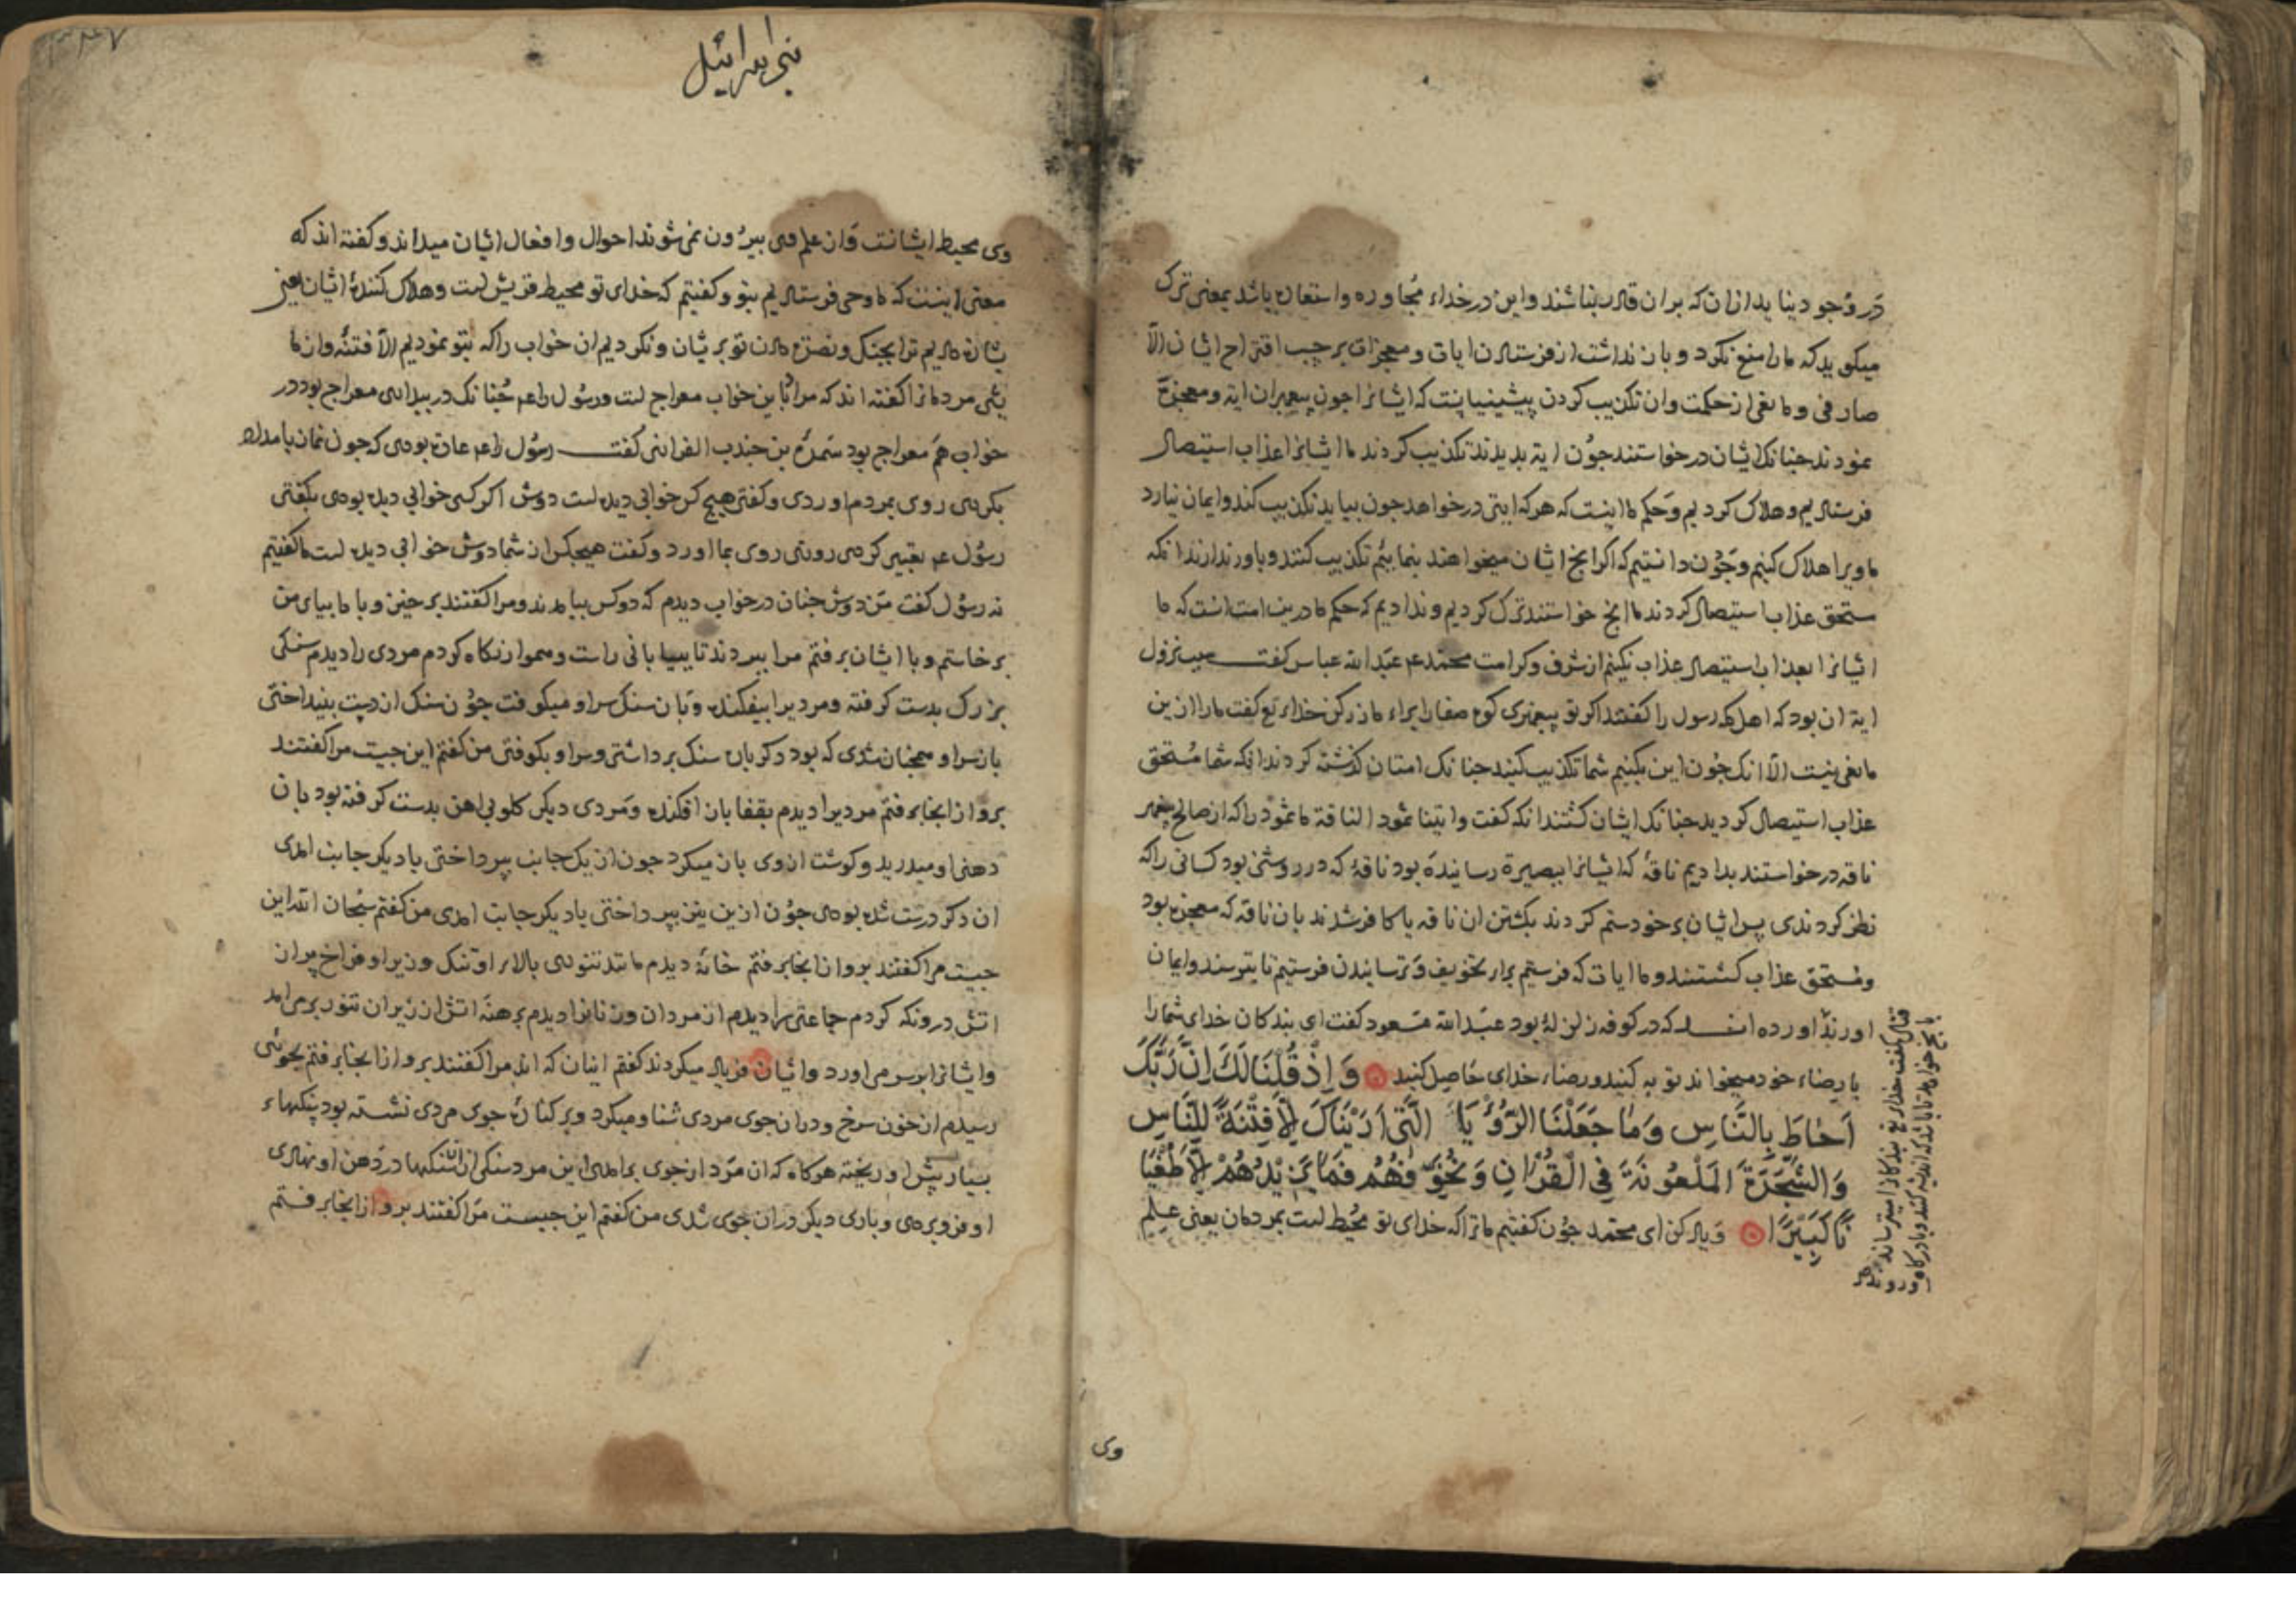 در وجود بنايد ازان كه بران قادر نباشند واين در خداء مجاوره واستعاره باشد بمعنى ترك
ميكويد كه ما را منع نكرد و باز نداشت از فرستادن ايات و معجزات بر حسب اقتراح ايشان الا
صارفى و مانعى از حكمت وان تكذيب كردن پيشينيانست كه ايشانرا جون پيغمبران ايه و معجزه
نمودند جنانك ايشان درخواستند جون ايه بديدند تكذيب كردند ما ايشانرا عذاب استيصال
فرستاديم و هلاك كرديم و حكم ما اينست كه هر كه ايتى درخواهد جون بيايد تكذيب كند وايمان نيارد
ما ويرا هلاك كنيم و جون دانستيم كه اكر انج ايشان ميخواهند بنماييم تكذيب كنند و باور ندارند انكه
مستحق عذاب استيصال كردند ما انج خواستند ترك كرديم و نداديم كه حكم ما درين امت انست كه ما
ايشانرا بعذاب استيصال عذاب نكنيم از شرف و كرامت محمد عم عبد الله عباس كفت سبب نزول
ايه ان بود كه اهل مكه رسول را كفتند اكر تو پيغمبرى كوه صفا را براء ما زر كن خداء تع كفت ما را ازين
مانعى نيست الا انك جون اين بكنيم شما تكذيب كنيد جنانك امتان كذشته كردند انكه شما مستحق
عذاب استيصال كرديد جنانك ايشان كشتند انكه كفت واتينا ثمود الناقة ما ثمود را كه از صالح پيغمبر
ناقه درخواستند بداديم ناقه كه ايشانرا ببصيرة رساننده بود ناقه كه در روشنى بود كسانى را كه
نظر كردندى پس ايشان بر خود ستم كردند بكشتن ان ناقه يا كافر شدند بان ناقه كه معجزه بود
ومستحق عذاب كشتند و ما ايات كه فرستيم براء تخويف و ترسانيدن فرستيم تا بترسند وايمان
اورند اورده اند كه در كوفه زلزله بود عبد الله مسعود كفت اى بندكان خداى شما را
با رضاء خود ميخواند توبه كنيد و رضاء خداى حاصل كنيد وَاِذْ قُلْنَا لَكَ اِنَّ رَبَّكَ
اَحَاطَ بِالنَّاسِ وَمَا جَعَلْنَا الرُّؤْيَا الَّتِي اَرَيْنَاكَ اِلَّا فِتْنَةً لِلنَّاسِ
وَالشَّجَرَةَ الْمَلْعُونَةَ فِي الْقُرْانِ وَنُخَوِّفُهُمْ فَمَا يَزِيْدُهُمْ اِلَّا طُغْيَا
نًا كَبِيْرًا و ياد كن اى محمد جون كفتيم ما ترا كه خداى تو محيط است بمردمان يعنى علم
وى
بنى اسرائيل
وى محيط ايشانست و از علم وى بيرون نمى شوند احوال وافعال ايشان ميداند و كفته اند كه
معنى اينست كه ما وحى فرستاديم بتو و كفتيم كه خداى تو محيط قريش است و هلاك كنندۀ ايشان
بشارة داديم ترا بجنك و نصرة دادن تو بريشان و نكرديم ان خواب را كه بتو نموديم الا فتنه وازما
يش مردمانرا كفته اند كه مراد باين خواب معراج است و رسول را عم جنانك در بيدارى معراج بود در
خواب هم معراج بود سمرة بن جندب الفزارى كفت رسول را عم عادة بودى كه جون نماز بامداد
بكردى روى بمردم اوردى و كفتى هيچ كس خوابى ديده است دوش اكر كسى خوابى ديده بودى بكفتى
رسول عم تعبير كردى روزى روى بما اورد و كفت هيچكس از شما دوش خوابى ديده است ما كفتيم
نه رسول كفت من دوش جنان در خواب ديدم كه دو كس بيامدند و مرا كفتند برخيز و با ما بياى من
برخاستم و با ايشان برفتم مرا ببردند تا بيابانى راست و هموار نكاه كردم مردى را ديدم سنكى
بزرك بدست كرفته و مرديرا بيفكنده و بان سنك سر او ميكوفت جون سنك از دست بينداختى
باز سر او همجنان شدى كه بود دكر باره سنك برداشتى و سر او بكوفتى من كفتم اين جيست مرا كفتند
برو از انجا برفتم مرديرا ديدم بقفا باز افكنده و مردى ديكر كلوبى اهن بدست كرفته بود بان
دهن او ميدريد و كوشت از وى باز ميكرد جون از يك جانب بپرداختى باديكر جانب امدى
ان دكر درست شده بودى جون ازين نيز بپرداختى باديكر جانب امدى من كفتم سبحان الله اين
جيست مرا كفتند برو از انجا برفتم خانۀ ديدم مانند تنورى بالاء او تنك و زير او فراخ پر از
اتش درو نكه كردم جماعتى را ديدم از مردان و زنانرا ديدم برهنه اتش از زير ان تنور برمى امد
وايشانرا بر سر مى اورد وايشان فرياد ميكردند كفتم اينان كه اند مرا كفتند برو از انجا برفتم بجوئى
رسيدم از خون سرخ و در ان جوى مردى شنا و ميكرد و بر كنارۀ جوى مردى نشسته بود سنكهاء
بسيار پيش او ريخته هركاه كه ان مرد از جوى برامدى اين مرد سنكى ازان سنكها در دهن او نهادى
او فرو بردى و بارى ديكر در ان جوى شدى من كفتم اين جيست مرا كفتند برو از انجا برفتم